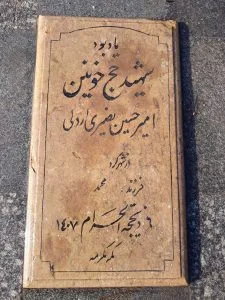 یادبود
شهید حج خونین
امیرحسین نصیری اردلی
از شهرکرد
فرزند: محمد
۶ ذیحجه الحرام ۱۴۰۷
مکه مکرمه